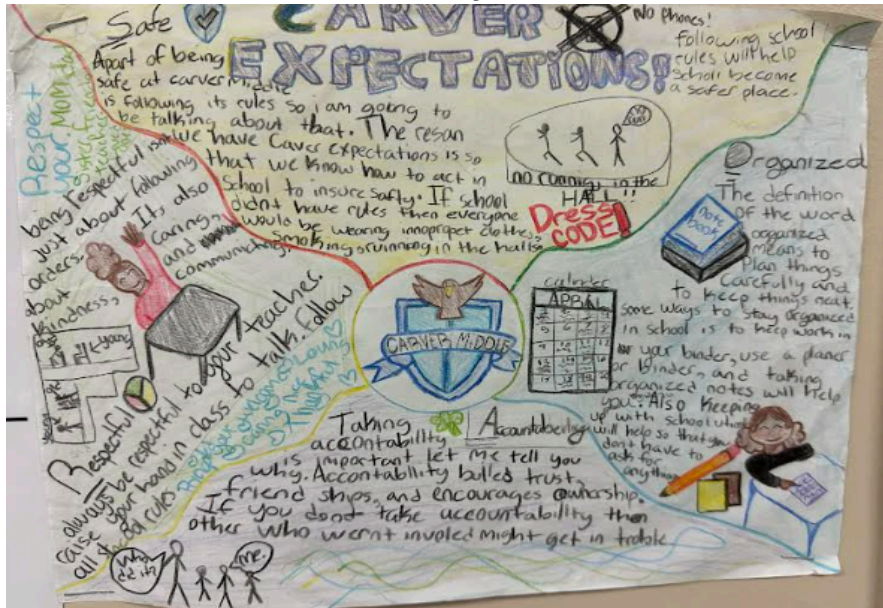 CARVER
EXPECTATIONS!
Safe
Apart of being
safe at carver Middle
is following its rules so i am going to
be talking about that. The resan
we have Caver expectations is so
that we know how to act in
School to insure safty. If school
didnt have rules then everyone
would be wearing innopropet clothes,
Smoking, or running in the halls.
No Phones!
following school
rules will help
scholl become
a safer place.
no running in the
HALL!!
Dress
CODE!
Organized
The definition
of the word
organized
means to
Plan things
Carefully and
to keep things neat.
Some ways to stay organized
in school is to keep work in
your binder, use a planer
or binder, and talking
organized notes will help
you. Also Keeping
up with school work
will help so that you
dont have to
ask for
anything
note
book
calinder
APRIL
CARVER MIDDLE
Respect
your
Mom
dad
being respectful isnt
just about following
orders.
It, also
about
caring,
kindness,
and
communicating
Respectful
always be respectful to your teaches.
raise your hand in class to talk. Follow
all school rules
Accountability
Taking
accountability
is important let me tell you
why. Accountability builed trust,
friend ships, and encourages ownership.
If you dont take accountability then
other who wernt involed might get in troble
Who
did it?
me.